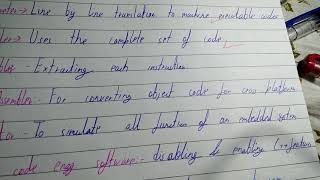 eter → Line by line translation to machine executable codes
ler → Uses the complete set of code
bler - Extracting each instruction
ssembler - For converting object code for cross platform
tor - To simulate all function of an embedded system
code engg software - disabling & enabling